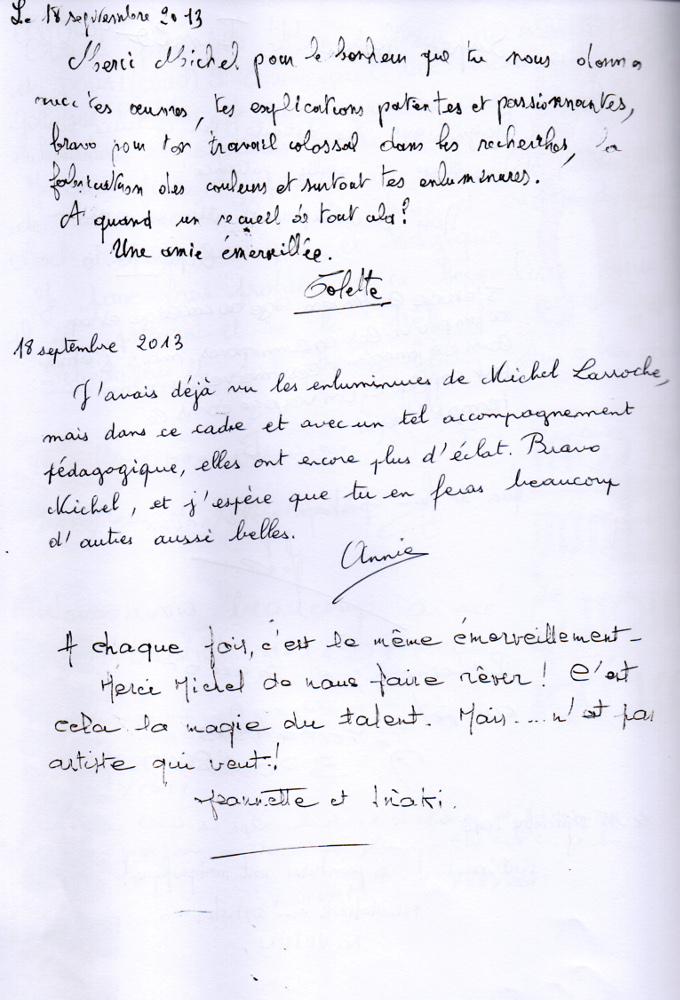 Le 18 septembre 2013
Merci Michel pour le bonheur que tu nous donnes
avec tes œuvres, tes explications patentes et passionnantes,
bravo pour ton travail colossal dans les recherches, la
fabrication des couleurs et surtout tes enluminures.
A quand un recueil de tout cela?
Une amie émerveillée.
18 septembre 2013
J'avais déjà vu les enluminures de Michel Larroche,
mais dans ce cadre et avec un tel accompagnement
pédagogique, elles ont encore plus d'éclat. Bravo
Michel, et j'espère que tu en feras beaucoup
d'autres aussi belles.
Annie
A chaque fois, c'est le même émerveillement-
Merci Michel de nous faire rêver! C'est
cela la magie du talent. Mais....n'est pas
artiste qui veut!
Jeannette et Iñaki.